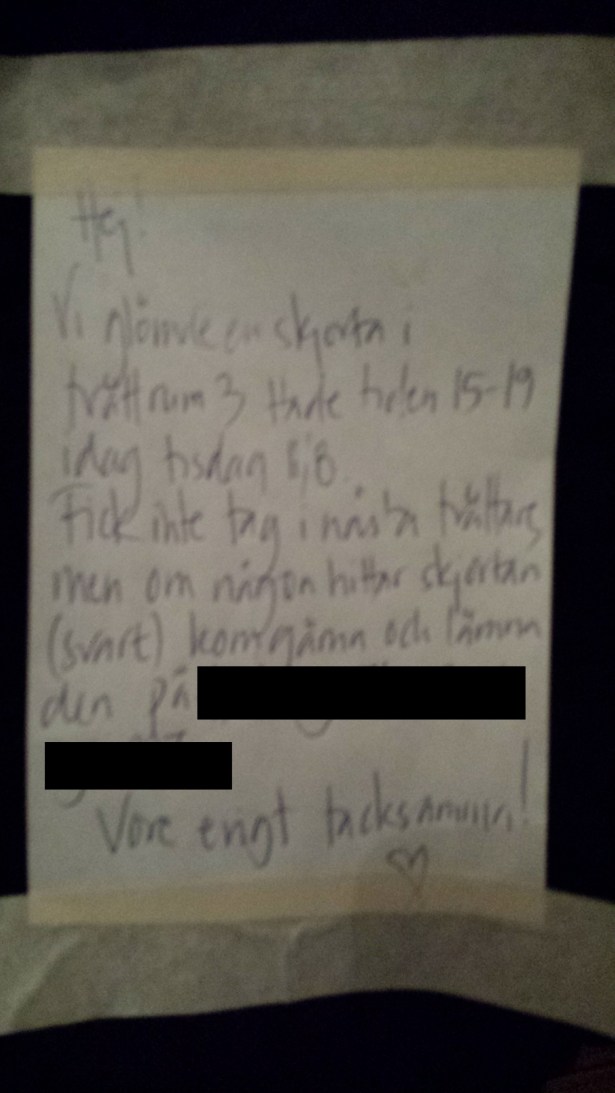 Hej!
Vi glömde en skjorta i
tvättrum 3 Hade tiden 15-19
idag tisdag 8/8
Fick inte tag i nästa tvättare,
men om någon hittar skjortan
(svart) kom gärna och lämna
den på
Vore evigt tacksamma!